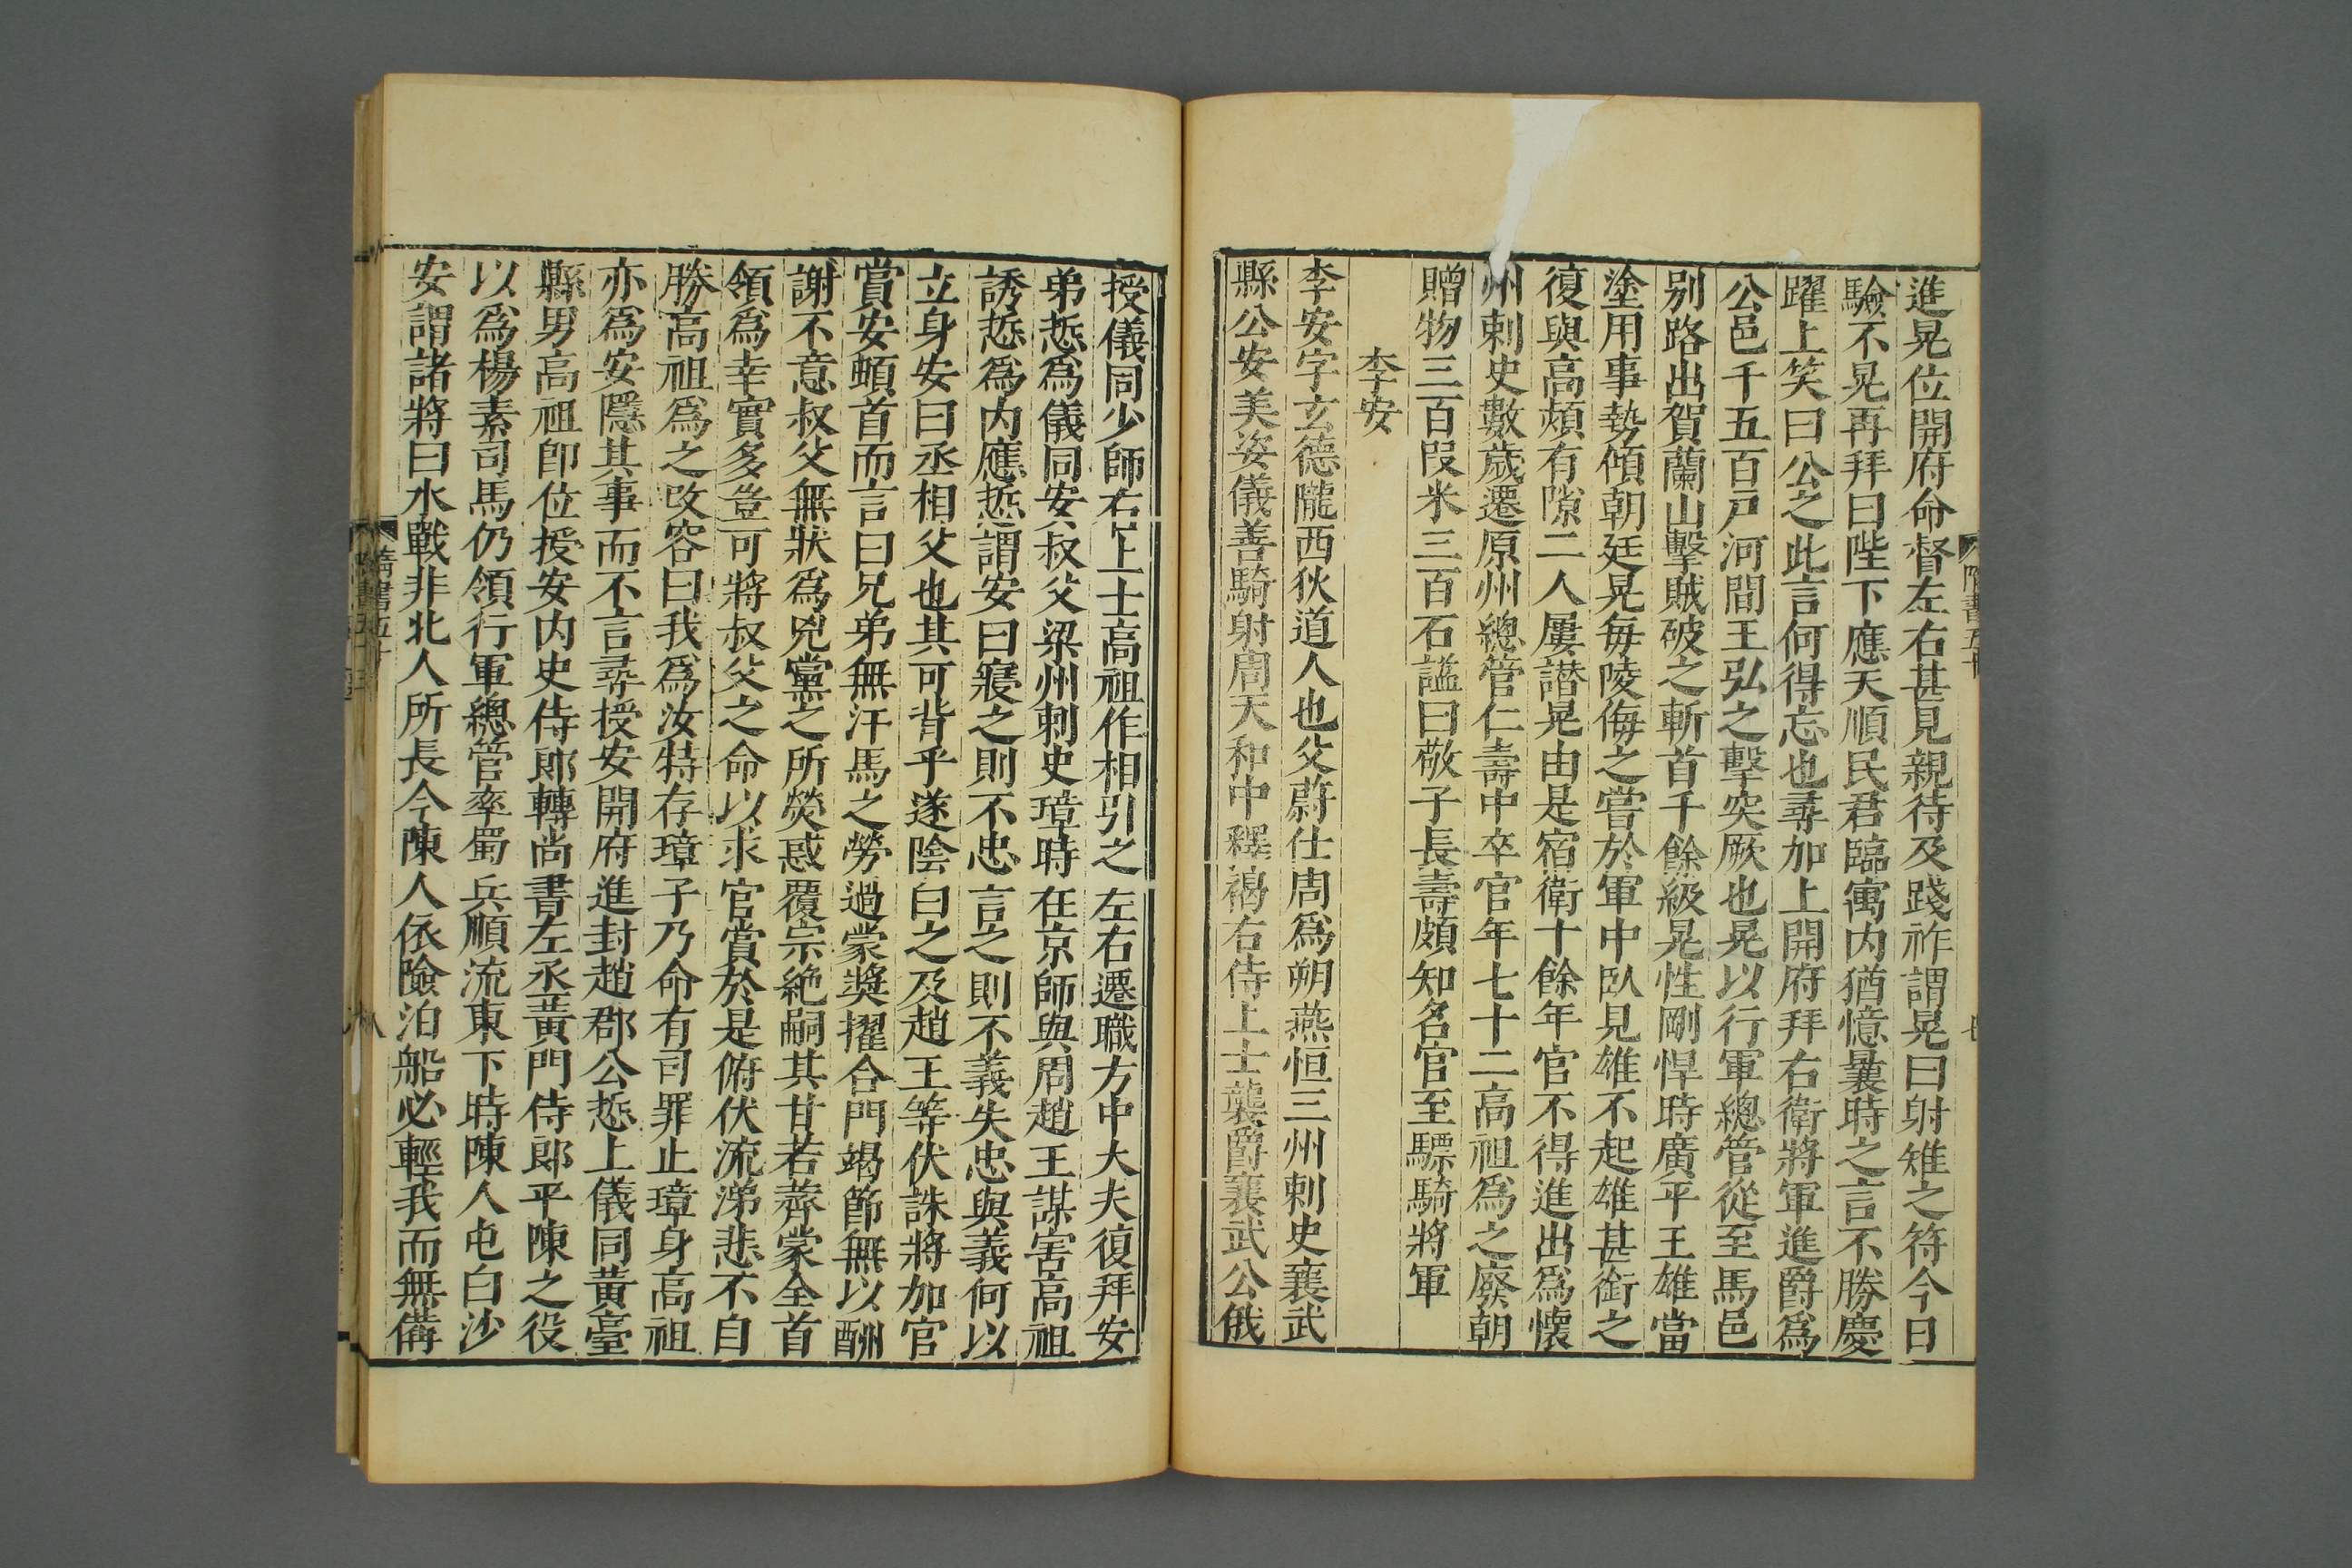 進晃位開府命督左右甚見親待及踐祚謂晃曰射雉之符今日
驗不晃再拜曰陛下應天順民君臨寓内猶憶曩時之言不勝慶
躍上笑曰公之此言何得忘也尋加上開府拜右衛將軍進爵爲
公邑千五百戸河間王弘之擊突厥也晃以行軍總管從至馬邑
别路出賀蘭山擊賊破之斬首千餘級晃性剛悍時廣平王雄當
塗用事勢傾朝廷晃每陵侮之嘗於軍中臥見雄不起雄甚銜之
復與高熲有隙二人屢譖晃由是宿衛十餘年官不得進出爲懷
州刺史數歲遷原州總管仁壽中卒官年七十二高祖爲之廢朝
贈物三百段米三百石謚曰敬子長壽頗知名官至驃騎將軍
李安
李安字玄德隴西狄道人也父蔚仕周爲朔燕恒三州刺史襄武
縣公安美姿儀善騎射周天和中釋褐右侍上士襲爵襄武公俄
授儀同少師右上士高祖作相引之左右遷職方中大夫復拜安
弟悊爲儀同安叔父梁州刺史璋時在京師與周趙王謀害高祖
誘悊爲内應悊謂安曰寢之則不忠言之則不義失忠與義何以
立身安曰丞相父也其可背乎遂陰白之及趙王等伏誅將加官
賞安頓首而言曰兄弟無汗馬之勞過蒙奬擢合門竭節無以酬
謝不意叔父無狀爲兇黨之所熒惑覆宗絶嗣其甘若薺蒙全首
領爲幸實多豈可將叔父之命以求官賞於是俯伏流涕悲不自
勝高祖爲之改容曰我爲汝特存璋子乃命有司罪止璋身高祖
亦爲安隱其事而不言尋授安開府進封趙郡公悊上儀同黃臺
縣男高祖卽位授安内史侍郎轉尚書左丞黃門侍郎平陳之役
以爲楊素司馬仍領行軍總管率蜀兵順流東下時陳人屯白沙
安謂諸將曰水戰非北人所長今陳人依險泊船必輕我而無備